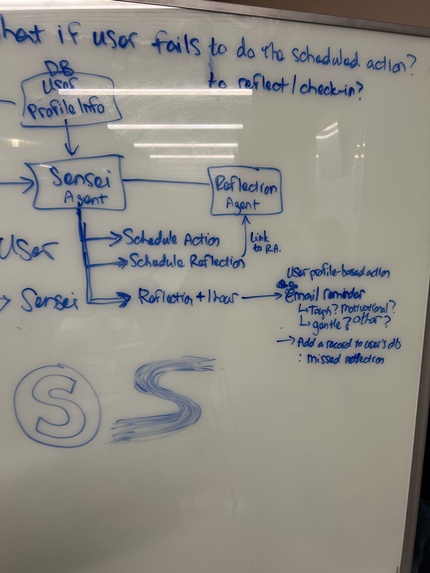 what if user fails to do the scheduled action?
to reflect/check-in?
DB
User
Profile Info
Sensei
Agent
Reflection
Agent
User
Schedule Action
Schedule Reflection
Link
to R.A.
Sensei
Reflection + 1 hour
User profile-based action
Email reminder
Tough? motivational?
gentle? other?
Add a record to user's db
: missed reflection
S S